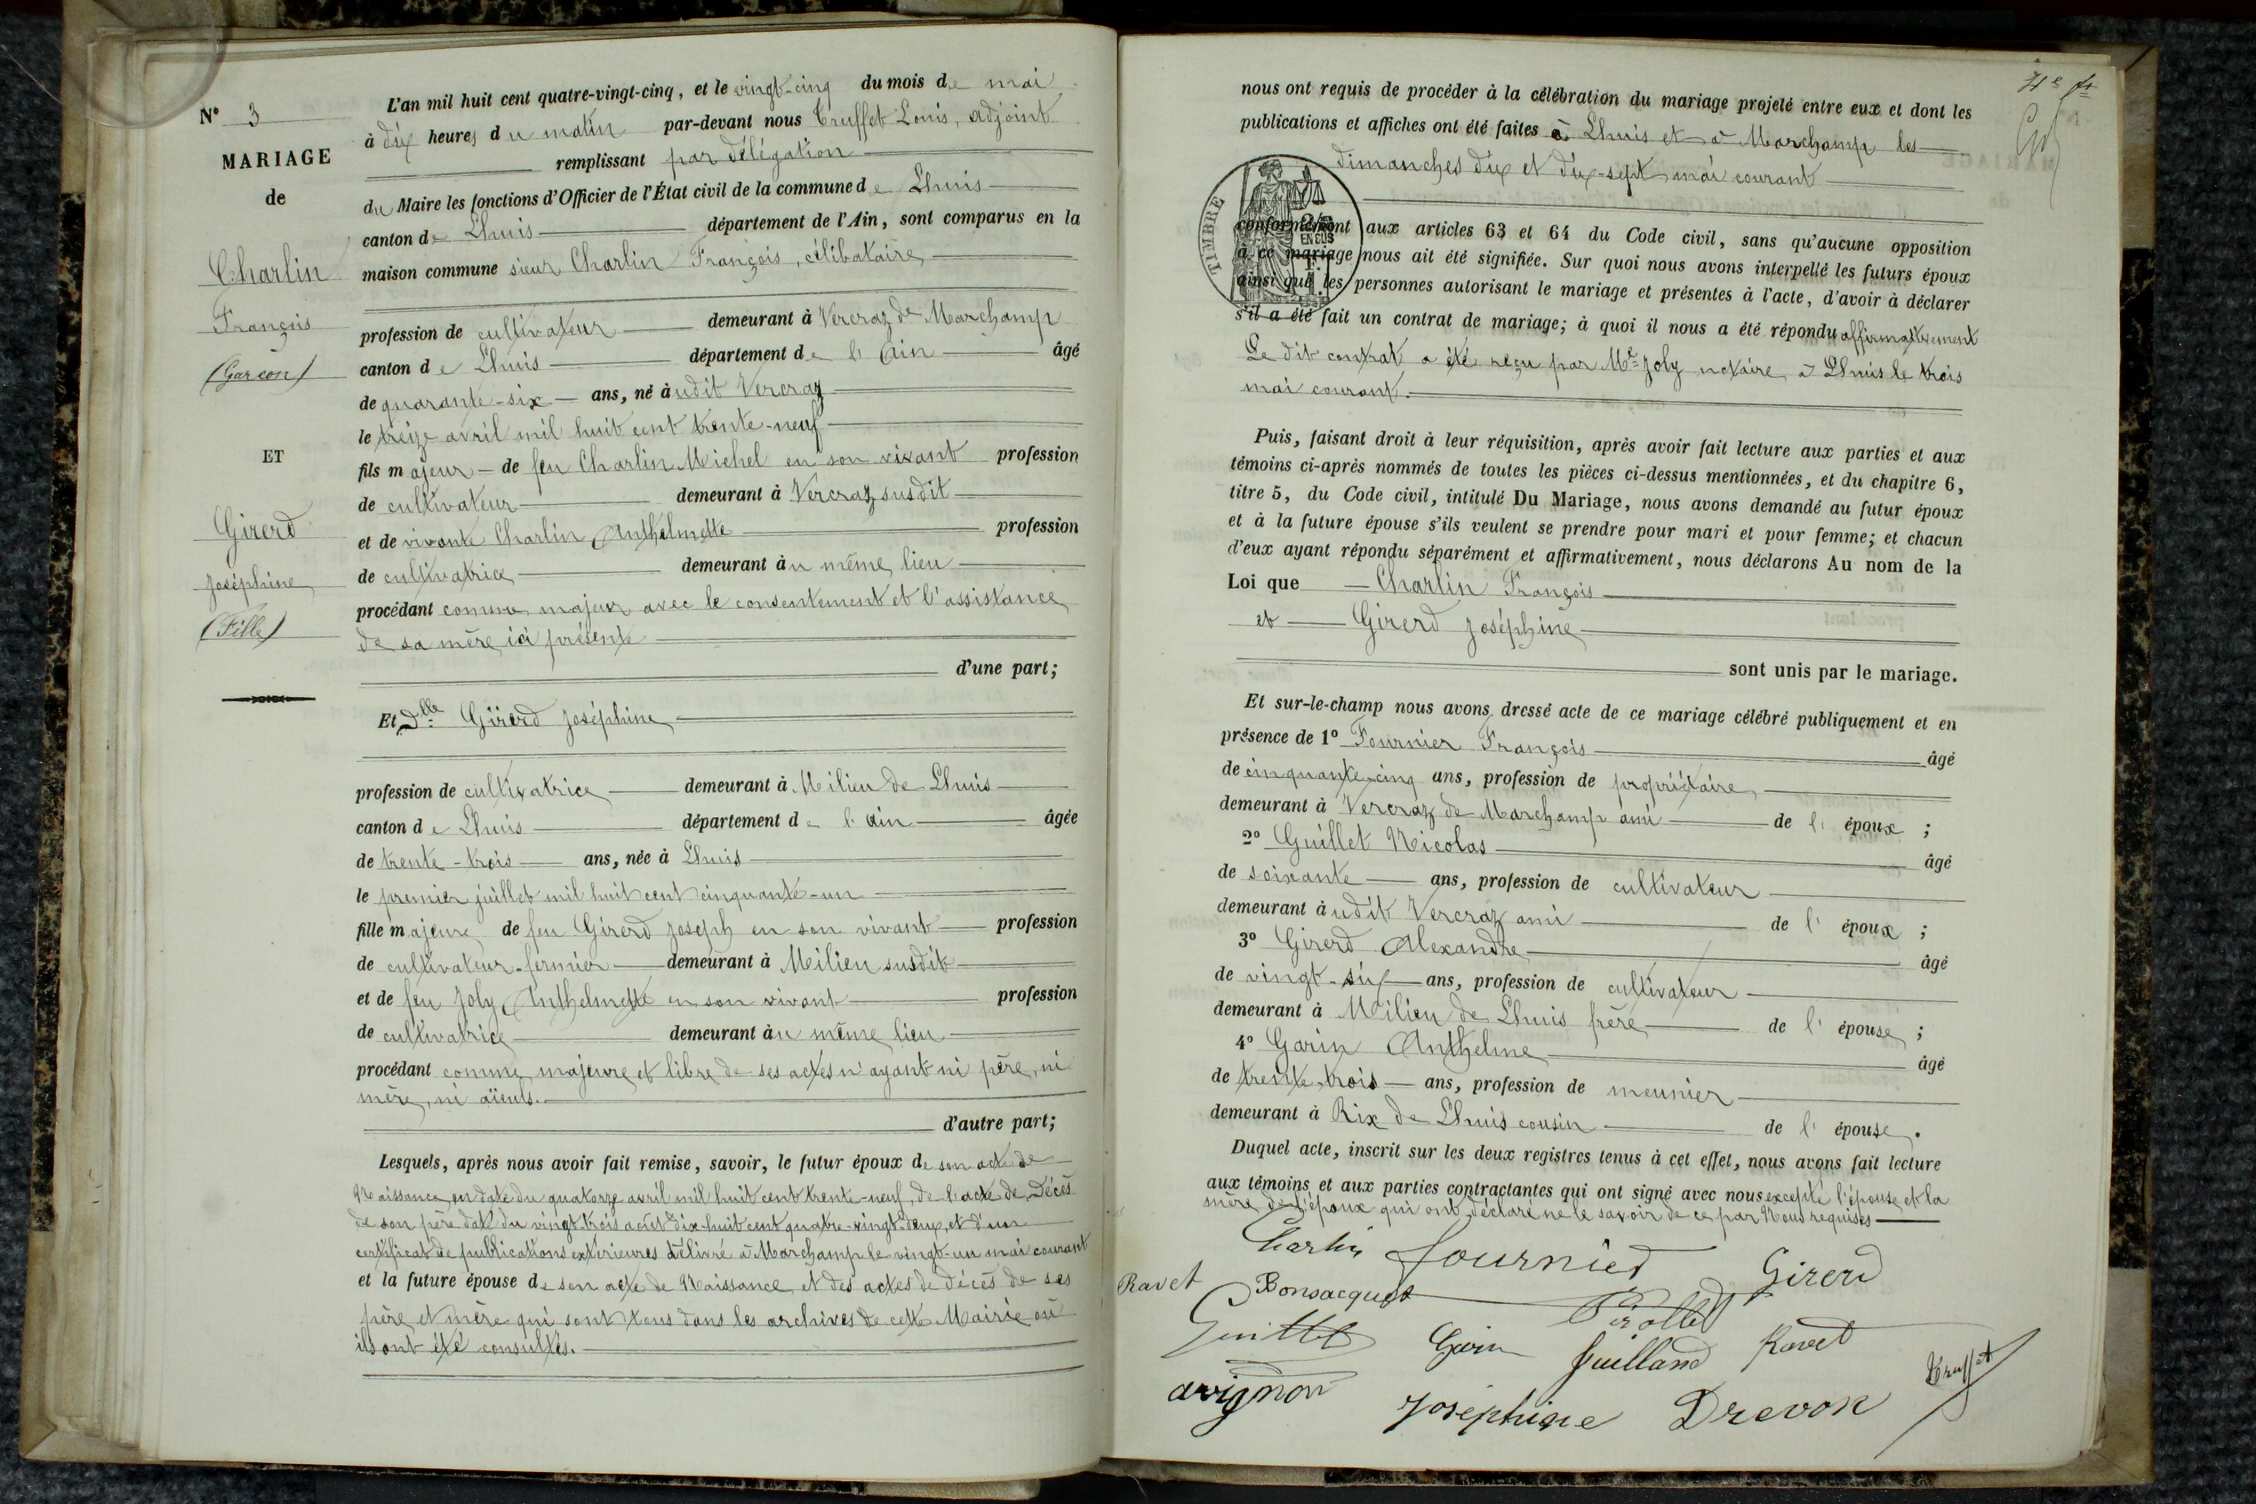 N° 3
MARIAGE
de
Charlin
François
(Garçon)
ET
Girerd
Joséphine
(Fille)
L'an mil huit cent quatre-vingt-cinq, et le vingt-cinq du mois de mai
à dix heures du matin par-devant nous Truffet Louis, adjoint
remplissant par délégation
du Maire les fonctions d'Officier de l'État civil de la commune de Lhuis
canton de Lhuis département de l'Ain, sont comparus en la
maison commune sieur Charlin François, célibataire
profession de cultivateur demeurant à Vercraz de Marchamp
canton de Lhuis département de l'Ain âgé
de quarante-six ans, né àudit Vercraz
le treize avril mil huit cent trente-neuf
fils majeur de feu Charlin Michel en son vivant profession
de cultivateur demeurant à Vercraz susdit
et de vivante Charlin Anthelmette profession
de cultivatrice demeurant àu même lieu
procédant comme majeur avec le consentement et l'assistance
de sa mère ici présente
d'une part;
Et Dlle Girerd Joséphine
profession de cultivatrice demeurant à Milieu de Lhuis
canton de Lhuis département de l'Ain âgée
de trente-trois ans, née à Lhuis
le premier juillet mil huit cent cinquante-un
fille majeure de feu Girerd Joseph en son vivant profession
de cultivateur-fermier demeurant à Milieu susdit
et de feu Joly Anthelmette en son vivant profession
de cultivatrice demeurant àu même lieu
procédant comme majeure et libre de ses actes n'ayant ni père, ni
mère, ni aïeuls.
d'autre part;
Lesquels, après nous avoir fait remise, savoir, le futur époux de son acte de
Naissance en date du quatorze avril mil huit cent trente-neuf, de l'acte de Décès
de son père daté du vingt-trois août dix-huit cent quatre-vingt-deux, et d'un
certificat de publications extérieures délivré à Marchamp le vingt-un mai courant
et la future épouse de son acte de Naissance et des actes de décès de ses
père et mère qui sont tous dans les archives de cette Mairie où
ils ont été consultés.
nous ont requis de procéder à la célébration du mariage projeté entre eux et dont les
publications et affiches ont été faites à Lhuis et à Marchamp les
dimanches dix et dix-sept mai courant
TIMBRE
conformément aux articles 63 et 64 du Code civil, sans qu'aucune opposition
à ce mariage nous ait été signifiée. Sur quoi nous avons interpellé les futurs époux
ainsi que les personnes autorisant le mariage et présentes à l'acte, d'avoir à déclarer
s'il a été fait un contrat de mariage; à quoi il nous a été répondu affirmativement
Le dit contrat a été reçu par Me Joly notaire à Lhuis le trois
mai courant.
Puis, faisant droit à leur réquisition, après avoir fait lecture aux parties et aux
témoins ci-après nommés de toutes les pièces ci-dessus mentionnées, et du chapitre 6,
titre 5, du Code civil, intitulé Du Mariage, nous avons demandé au futur époux
et à la future épouse s'ils veulent se prendre pour mari et pour femme; et chacun
d'eux ayant répondu séparément et affirmativement, nous déclarons Au nom de la
Loi que Charlin François
et Girerd Joséphine
sont unis par le mariage.
Et sur-le-champ nous avons dressé acte de ce mariage célébré publiquement et en
présence de 1° Fournier François âgé
de cinquante-cinq ans, profession de propriétaire
demeurant à Vercraz de Marchamp ami de l' époux ;
2° Guillet Nicolas âgé
de soixante ans, profession de cultivateur
demeurant àudit Vercraz ami de l' époux ;
3° Girerd Alexandre âgé
de vingt-six ans, profession de cultivateur
demeurant à Milieu de Lhuis frère de l' épouse ;
4° Garin Anthelme âgé
de trente-trois ans, profession de meunier
demeurant à Rix de Lhuis cousin de l' épouse.
Duquel acte, inscrit sur les deux registres tenus à cet effet, nous avons fait lecture
aux témoins et aux parties contractantes qui ont signé avec nous excepté l'épouse et la
mère de l'époux qui ont déclaré ne le savoir de ce par Nous requises
Charlin Fournier Girerd
Ravet Bonsacquet Perollet
Guillet Garin Guilland Ravet Truffet
avignon Joséphine Drevon